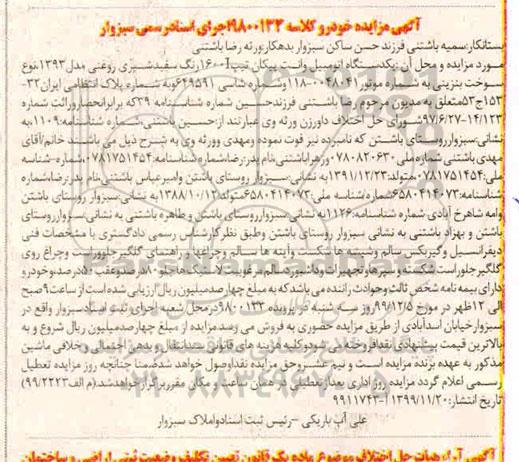 آگهی مزایده خودرو کلاسه ۹۸۰۰۱۳۳ اجرای اسناد رسمی سبزوار
بستانکار:سمیه باشتنی فرزند حسن ساکن سبزوار بدهکار:ورثه رضا باشتنی
مورد مزایده و محل آن:یکدستگاه اتومبیل وانت پیکان تیپ ۱۶۰۰آ رنگ سفید شیری روغنی مدل ۱۳۹۳،نوع
سوخت بنزینی به شماره موتور ۱۱۸۰۰۴۸۰۴۱ وشماره شاسی ۶۴۹۵۹۱ وبه شماره پلاک انتظامی ایران ۳۲-
۱۵۳ج۵۳ متعلق به مدیون مرحوم رضا باشتنی فرزند حسین شماره شناسنامه ۳۹ که برابر انحصار وراثت شماره
۱۴/۱۲۳-۹۷/۶/۲۷ شورای حل اختلاف داورزن ورثه وی عبارتند از:حسین باشتنی،شماره شناسنامه:۱۱۰۹،به
نشانی:سبزوار روستای باشتن که نامبرده نیز فوت نموده ومهدی وورثه وی به شرح ذیل می باشند خانم/آقای
مهدی باشتنی شماره ملی ۰۷۸۰۸۲۰۶۳۰ وزهرا باشتنی،نام پدر:رضا،شماره شناسنامه:۰۷۸۱۷۵۱۴۵۴،شماره-شناسه
ملی:۰۷۸۱۷۵۱۴۵۴،متولد:۱۳۹۱/۱۲/۲۳،به نشانی:سبزوار روستای باشتن وامیرعباس باشتنی،نام پدر:رضا،شماره
شناسنامه:۶۵۸۰۴۱۴۰۷۳،شماره/شناسه ملی:۶۵۸۰۴۱۴۰۷۳،متولد:۱۳۸۸/۱۰/۱۲،به نشانی:سبزوار روستای باشتن
وامه شاهرخ آبادی شماره شناسنامه:۱۱۲۶،به نشانی:سبزوار روستای باشتن و طاهره باشتنی به نشانی:سبزوار روستای
باشتن و بهزاد باشتنی به نشانی سبزوار روستای باشتن وطبق نظر کارشناس رسمی دادگستری با مشخصات فنی
دیفرانسیل و گیربکس سالم وشیشه ها شکست وآینه ها سالم وچراغها و راهنمای گلگیر جلوراست وچراغ روی
گلگیر جلوراست شکسته و سپرها و تجهیزات وداشبورد سالم سرعیب،لاستیک ها جلو ۸۰درصد و عقب ۵۰درصد،خودرو
دارای بیمه نامه شخص ثالث وحوادث راننده می باشد که به مبلغ چهارصد میلیون ریال ارزیابی شده است از ساعت ۹ صبح
الی ۱۲ظهر در مورخ ۹۹/۱۲/۵ روز سه شنبه در پرونده ۹۸۰۰۱۳۳ در محل شعبه اجرای ثبت اسناد سبزوار واقع در
سبزوار خیابان اسدآبادی از طریق مزایده حضوری به فروش می رسد مزایده از مبلغ چهارصد میلیون ریال شروع و به
بالاترین قیمت پیشنهادی نقدا فروخته می شود و کلیه هزینه های قانونی ضد انتقال و بدهی احتمالی و خلافی ماشین
مذکور به عهده برنده مزایده است و نیم عشر و حق مزایده نقدا وصول خواهد شد ضمنا چنانچه روز مزایده تعطیل
رسمی اعلام گردد مزایده روز اداری بعد از تعطیلی در همان ساعت و مکان مقرر برگزار خواهد شد(م الف ۹۹/۲۲۲۳)
تاریخ انتشار:۱۳۹۹/۱۱/۲۰- ۹۹۱۱۷۴۳
علی آب باریکی -رئیس ثبت اسناد و املاک سبزوار
آگهی آراء هیات حل اختلاف موضوع ماده یک قانون تعیین تکلیف وضعیت ثبتی اراضی و ساختمان